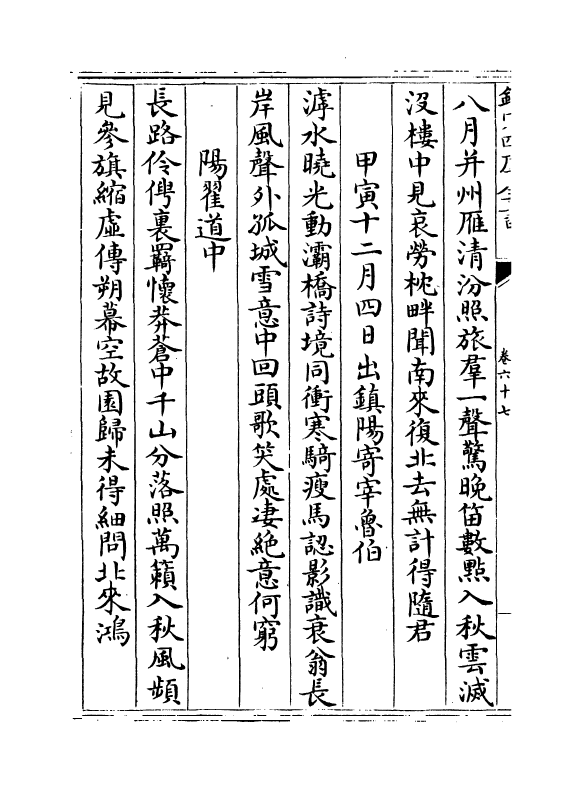 卷六十七
八月并州雁清汾照旅羣一聲驚晚笛數點入秋雲滅
沒樓中見哀勞枕畔聞南來復北去無計得隨君
甲寅十二月四日出鎮陽寄宰魯伯
滹水曉光動灞橋詩境同衝寒騎瘦馬認影識衰翁長
岸風聲外孤城雪意中回頭歌笑處凄絶意何窮
陽翟道中
長路伶俜裏羇懷莽蒼中千山分落照萬籟入秋風頻
見參旗縮虛傳朔幕空故園歸未得細問北來鴻